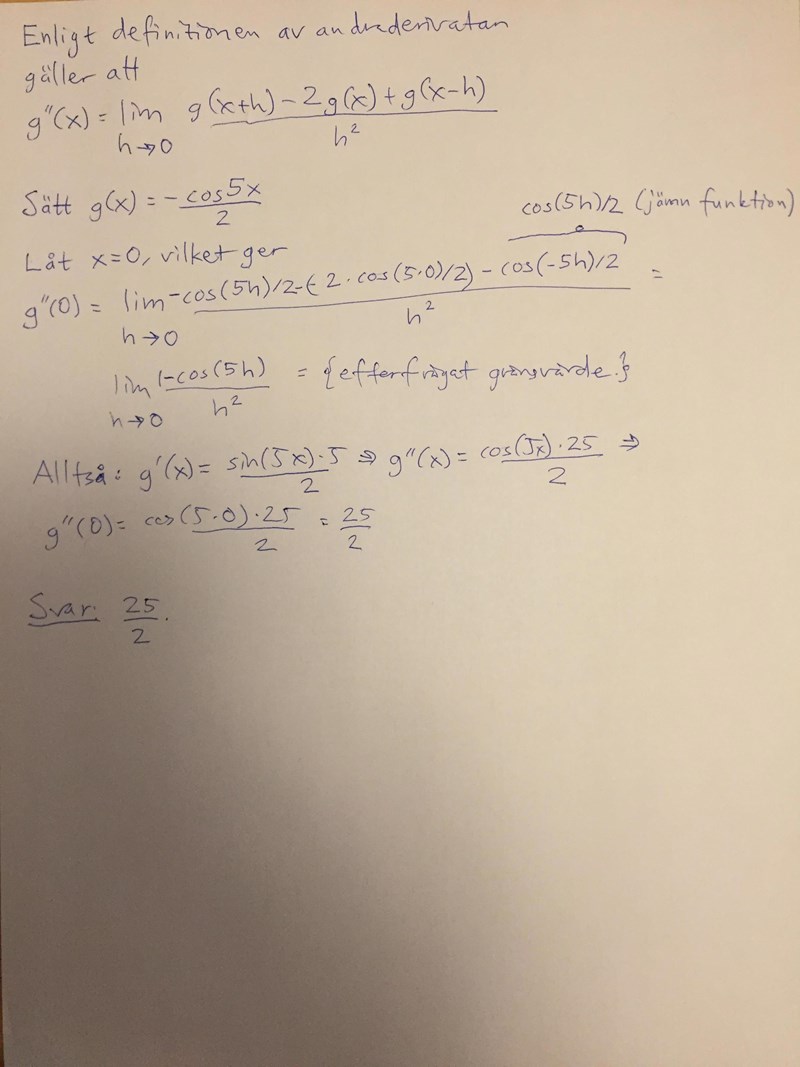 Enligt definitionen av andraderivatan
gäller att
g''(x) = lim h→0 (g(x+h) - 2g(x) + g(x-h)) / h²
Sätt g(x) = - cos5x / 2
cos(5h)/2 (jämn funktion)
Låt x=0, vilket ger
g''(0) = lim h→0 (-cos(5h)/2-(-2·cos(5·0)/2) - cos(-5h)/2) / h² =
lim h→0 (1-cos(5h)) / h² = {efterfrågat gränsvärde.}
Alltså: g'(x) = sin(5x)·5 / 2 ⇒ g''(x) = cos(5x)·25 / 2 ⇒
g''(0) = cos(5·0)·25 / 2 = 25/2
Svar: 25/2.